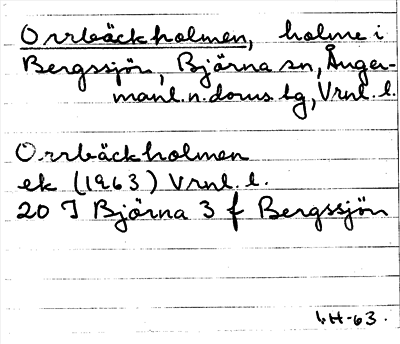 Orrbäckholmen, holme i
Bergssjön, Björna sn, Ånger-
manl. n. doms. tg, Vrnl. l.
Orrbäckholmen
ek (1963) Vrnl. l.
20 I Björna 3 f Bergssjön
LH-63.